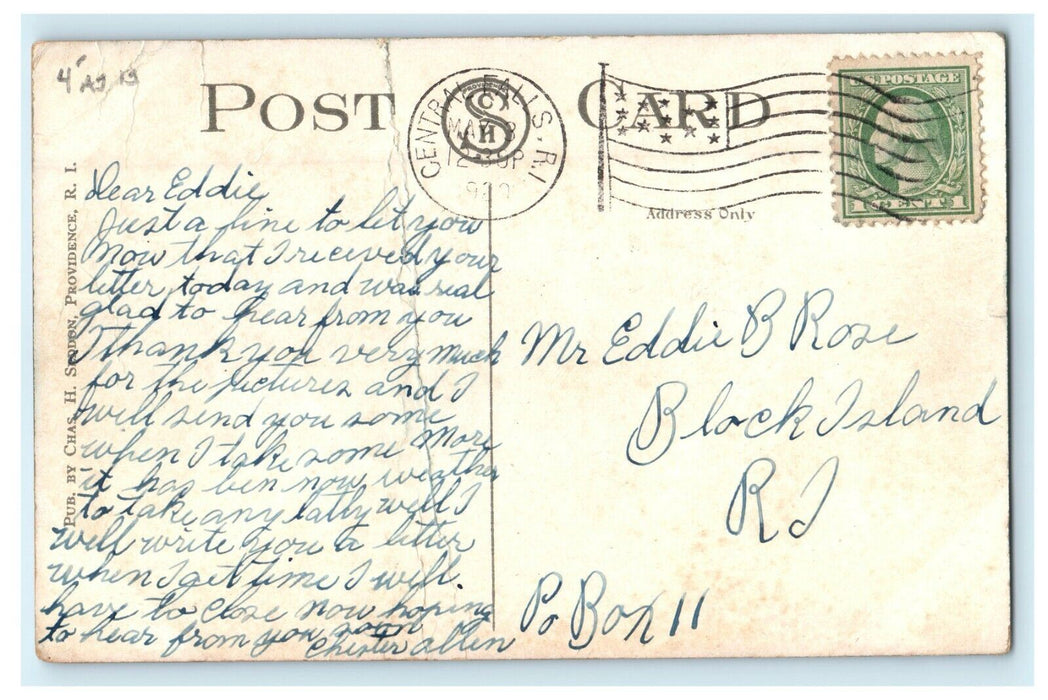 4
POST CARD
CENTRAL FALLS. R.I.
MAR 8
12-30P
PROVIDENCE
Address Only
POSTAGE
1 CENT 1
PUB. BY CHAS. H. SEDDON, PROVIDENCE, R. I.
Dear Eddie
Just a line to let you
now that I receved your
letter today and was real
glad to hear from you
Thank you very much
for the pictures and I
will send you some
when I take some more
it has ben now weather
to take any latly well I
will write you a letter
when I get time I will.
have to close now hoping
to hear from you soon
Chister allen
Mr Eddie B Rose
Block Island
RI
Po Box 11